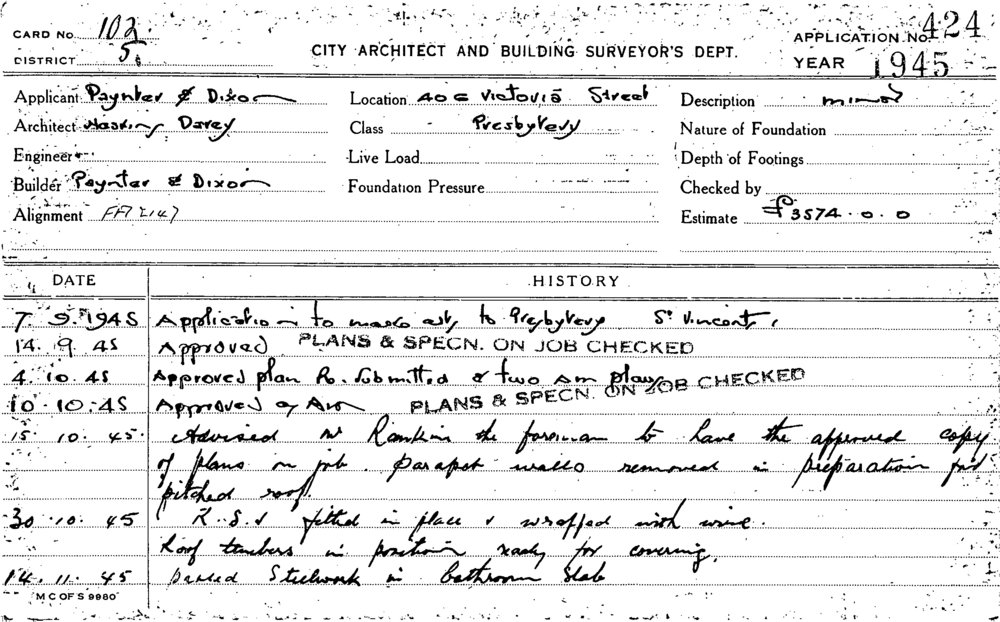 CARD No. 102
DISTRICT 5
CITY ARCHITECT AND BUILDING SURVEYOR'S DEPT.
APPLICATION No. 424
YEAR 1945
Applicant Paynter & Dixon
Location 40 Victoria Street
Description minor
Architect Darey
Class Presbytery
Nature of Foundation
Engineer
Live Load
Depth of Footings
Builder Paynter & Dixon
Foundation Pressure
Checked by
Alignment
Estimate £3574.0.0
DATE HISTORY
7 9. 1945 Application to to Presbytery St Vincents
14. 9. 45 Approved PLANS & SPECN. ON JOB CHECKED
4. 10. 45 Approved plan Re. submitted & two am plans
10. 10. 45 Approved PLANS & SPECN. ON JOB CHECKED
15. 10. 45. Advised Mr Rankin the foreman to have the approved copy
of plans on job. parapet walls removed in preparation for
pitched roof.
30. 10. 45 R.S.J fitted in place & wrapped with wire.
Roof timbers in position ready for covering.
14. 11. 45 passed Steelwork in bathroom slab
M C OF S 9980